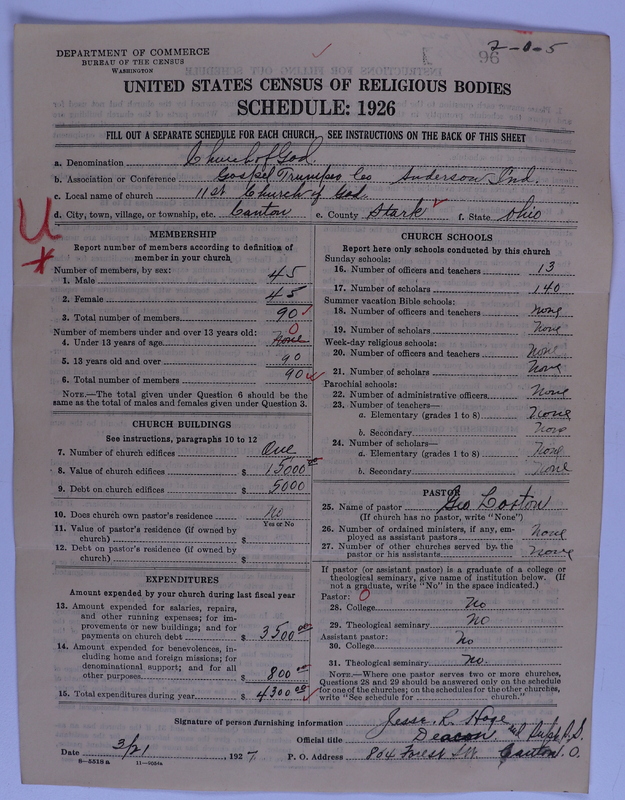 2-0-5
96
DEPARTMENT OF COMMERCE
BUREAU OF THE CENSUS
WASHINGTON
UNITED STATES CENSUS OF RELIGIOUS BODIES
SCHEDULE: 1926
FILL OUT A SEPARATE SCHEDULE FOR EACH CHURCH. SEE INSTRUCTIONS ON THE BACK OF THIS SHEET
a. Denomination Church of God
b. Association or Conference Gospel Trumpet Co Anderson Ind.
c. Local name of church 11 st Church of God
d. City, town, village, or township, etc. Canton e. County Stark f. State Ohio
MEMBERSHIP
Report number of members according to definition of
member in your church
Number of members, by sex:
1. Male 45
2. Female 45
3. Total number of members 90
Number of members under and over 13 years old:
4. Under 13 years of age None 0
5. 13 years old and over 90
6. Total number of members 90
NOTE.—The total given under Question 6 should be
same as the total of males and females given under Question 3.
CHURCH BUILDINGS
See instructions, paragraphs 10 to 12
7. Number of church edifices One
8. Value of church edifices $ 15000 00
9. Debt on church edifices $ 5000
10. Does church own pastor's residence? No
Yes or No
11. Value of pastor's residence (if owned by
church) $
12. Debt on pastor's residence (if owned by
church) $
EXPENDITURES
Amount expended by your church during last fiscal year
13. Amount expended for salaries, repairs,
and other running expenses; for im-
provements or new buildings; and for
payments on church debt $ 3500 00
14. Amount expended for benevolences, in-
cluding home and foreign missions; for
denominational support; and for all
other purposes $ 800 00
15. Total expenditures during year $ 4300 00
CHURCH SCHOOLS
Report here only schools conducted by this church
Sunday schools:
16. Number of officers and teachers 13
17. Number of scholars 140
Summer vacation Bible schools:
18. Number of officers and teachers none
19. Number of scholars none
Week-day religious schools:
20. Number of officers and teachers None
21. Number of scholars None
Parochial schools:
22. Number of administrative officers None
23. Number of teachers—
a. Elementary (grades 1 to 8) none
b. Secondary none
24. Number of scholars—
a. Elementary (grades 1 to 8) None
b. Secondary None
PASTOR
25. Name of pastor Geo Coston
(If church has no pastor, write "None")
26. Number of ordained ministers, if any, em-
ployed as assistant pastors none
27. Number of other churches served by the
pastor or his assistants none
If pastor (or assistant pastor) is a graduate of a college or
theological seminary, give name of institution below. (If
not a graduate, write "No" in the space indicated.)
Pastor: 0
28. College No
29. Theological seminary NO
Assistant pastor:
30. College No
31. Theological seminary No.
NOTE.—Where one pastor serves two or more churches,
Questions 28 and 29 should be answered only on the schedule
for one of the churches; on the schedules for the other churches,
write "See schedule for church."
Signature of person furnishing information Jesse R. Hoge
Official title Deacon
Date 3/21 1927 P. O. Address 864 Forest S.W. Canton. O.
8-5519 a 11-9054a